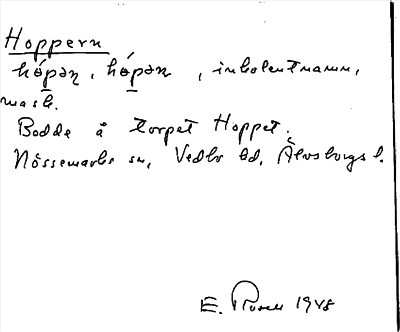 Hoppern
hópən, hópən, inkolentnamn,
mask.
Bodde å torpet Hoppet.
Nössemarks sn, Vedbo hd, Älvsborgs l.
E. Rosell 1948